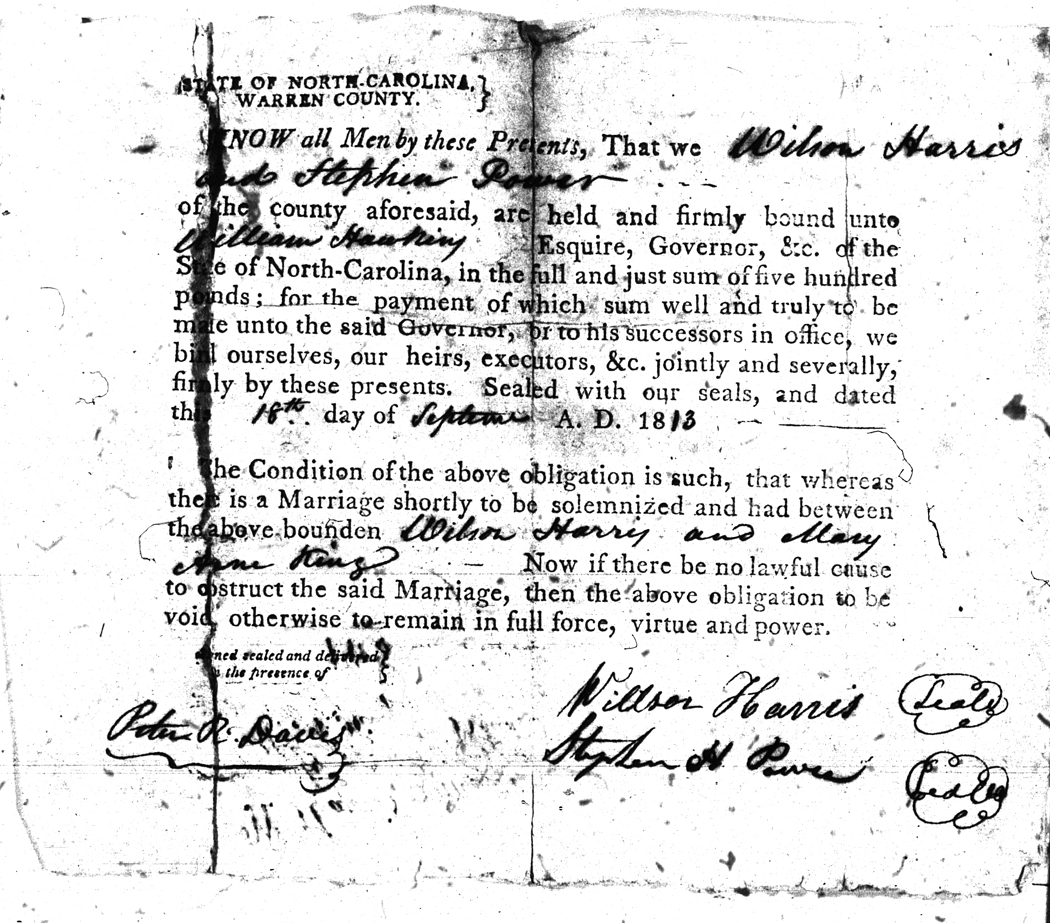 STATE OF NORTH-CAROLINA, }
WARREN COUNTY.
KNOW all Men by these Presents, That we Wilson Harris
and Stephen Power
of the county aforesaid, are held and firmly bound unto
William Hawkins Esquire, Governor, &c. of the
State of North-Carolina, in the full and just sum of five hundred
pounds; for the payment of which sum well and truly to be
made unto the said Governor, or to his successors in office, we
bind ourselves, our heirs, executors, &c. jointly and severally,
firmly by these presents. Sealed with our seals, and dated
this 18th. day of Septem A. D. 1813
The Condition of the above obligation is such, that whereas
there is a Marriage shortly to be solemnized and had between
the above bounden Wilson Harris and Mary
Anne King — Now if there be no lawful cause
to obstruct the said Marriage, then the above obligation to be
void, otherwise to remain in full force, virtue and power.
Signed sealed and delivered }
in the presence of
Willson Harris (Seal)
Peter R. Davis
Stephen H Power (Seal)